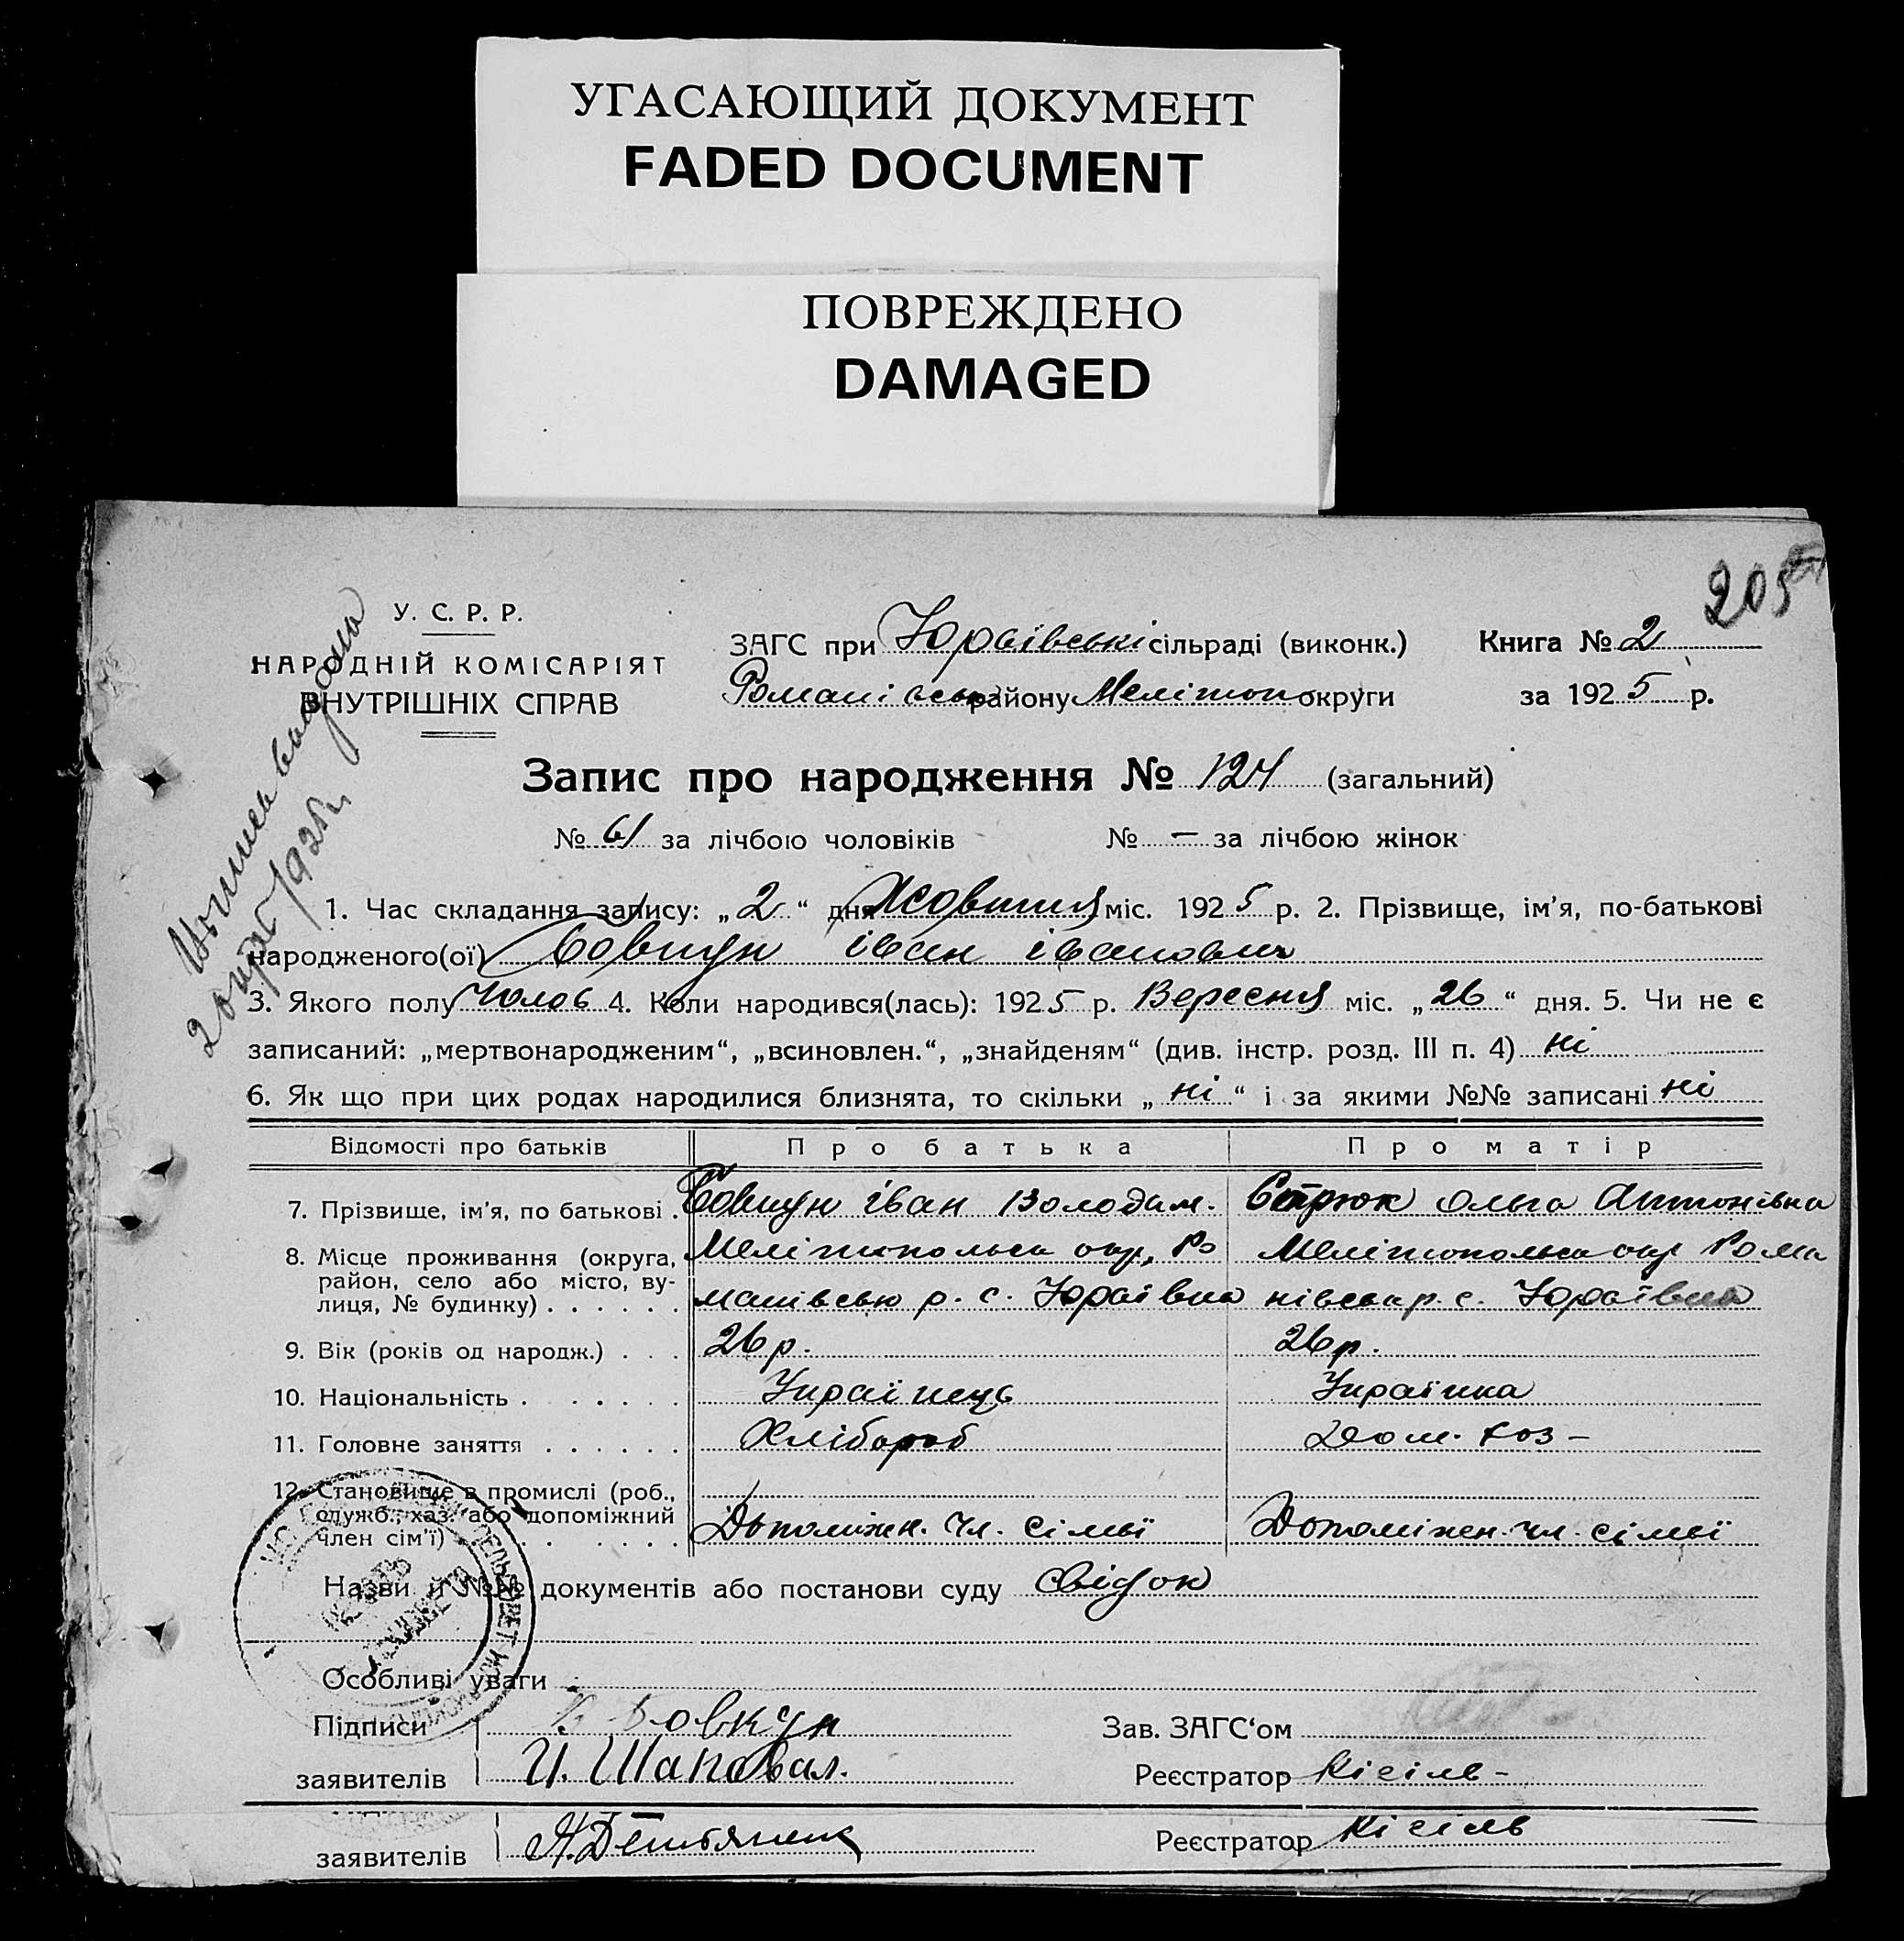 УГАСАЮЩИЙ ДОКУМЕНТ
FADED DOCUMENT
ПОВРЕЖДЕНО
DAMAGED
205
У. С. Р. Р.
НАРОДНІЙ КОМІСАРІЯТ
ВНУТРІШНІХ СПРАВ
ЗАГС при Юраївські сільраді (виконк.) Книга № 2
Романівськ району Мелітоп округи за 1925 р.
Запис про народження № 124 (загальний)
№ 61 за лічбою чоловіків № — за лічбою жінок
1. Час складання запису: „2“ дня Жовтня міс. 1925 р. 2. Прізвище, ім’я, по-батькові
народженого(ої) Бовкун іван іванович
3. Якого полу чолов 4. Коли народився(лась): 1925 р. Вересня міс. „26“ дня. 5. Чи не є
записаний: „мертвонародженим“, „всиновлен.“, „знайденям“ (див. інстр. розд. III п. 4) ні
6. Як що при цих родах народилися близнята, то скільки „ні“ і за якими №№ записані ні
Відомості про батьків Про батька Про матір
7. Прізвище, ім’я, по батькові . Бовкун іван Володим. Ольга Антонівна
8. Місце проживання (округа, Мелітопольськ окр, Ро Мелітопольськ окр Рома
район, село або місто, ву-
лиця, № будинку) . . . . . . манівськ р. с. Юраївка нівськ р. с. Юраївка
9. Вік (років од народж.) . . . 26 р. 26 р.
10. Національність . . . . . . Українець Українка
11. Головне заняття . . . . . . Хлібороб Дом. хоз –
12. Становище в промислі (роб.,
служб., хаз. або допоміжний
член сім’ї) . . . . . . Допоміжн. чл. сімьї Допоміжен. чл. сімьї
Назви й №№ документів або постанови суду свідок
Особливі уваги
Підписи Бовкун Зав. ЗАГС‘ом
заявителів И. Шаповал. Реєстратор Кісіль –
заявителів Реєстратор Кісіль